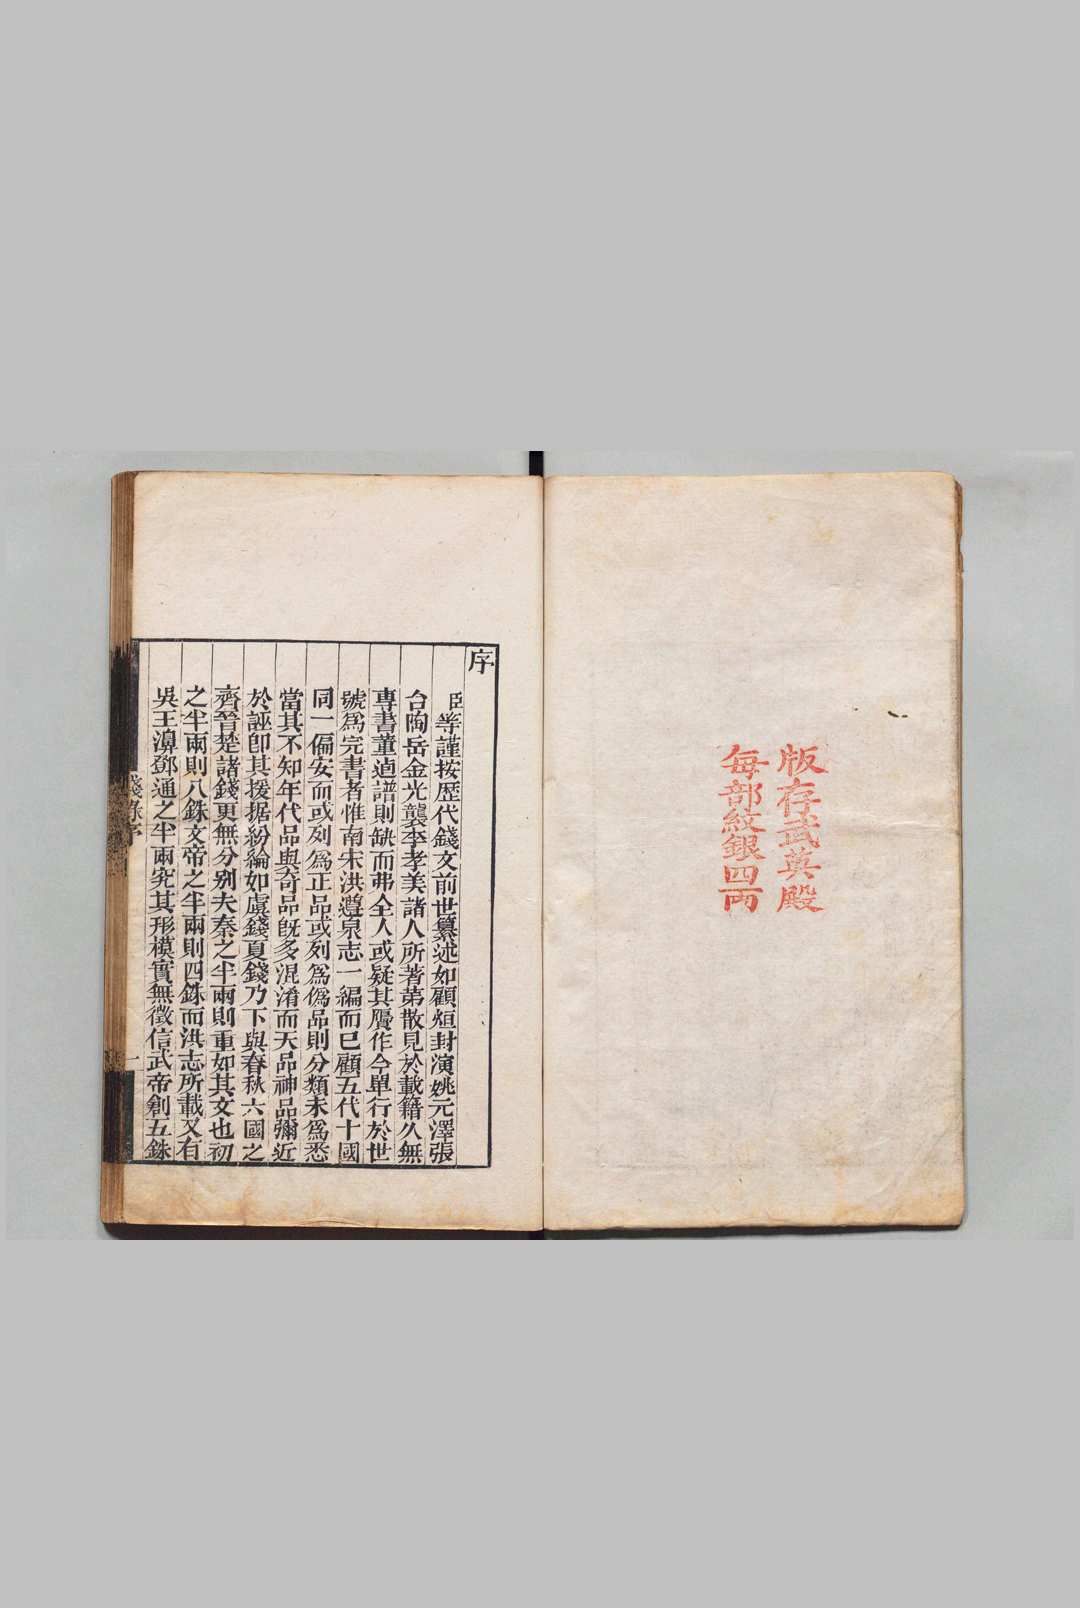 版存武英殿
每部紋銀四兩
序
臣等謹按歷代錢文前世纂述如顧烜封演姚元澤張
台陶岳金光襲李孝美諸人所著第散見於載籍久無
專書董逌譜則缺而弗全人或疑其贋作今單行於世
號爲完書者惟南宋洪遵泉志一編而已顧五代十國
同一偏安而或列爲正品或列爲僞品則分類未爲悉
當其不知年代品與奇品旣多混淆而天品神品彌近
於誣卽其援据紛綸如虞錢夏錢乃下與春秋六國之
齊晉楚諸錢更無分别夫秦之半兩則重如其文也初
之半兩則八銖文帝之半兩則四銖而洪志所載又有
吳王濞鄧通之半兩究其形模實無徵信武帝創五銖
錢錄序
一